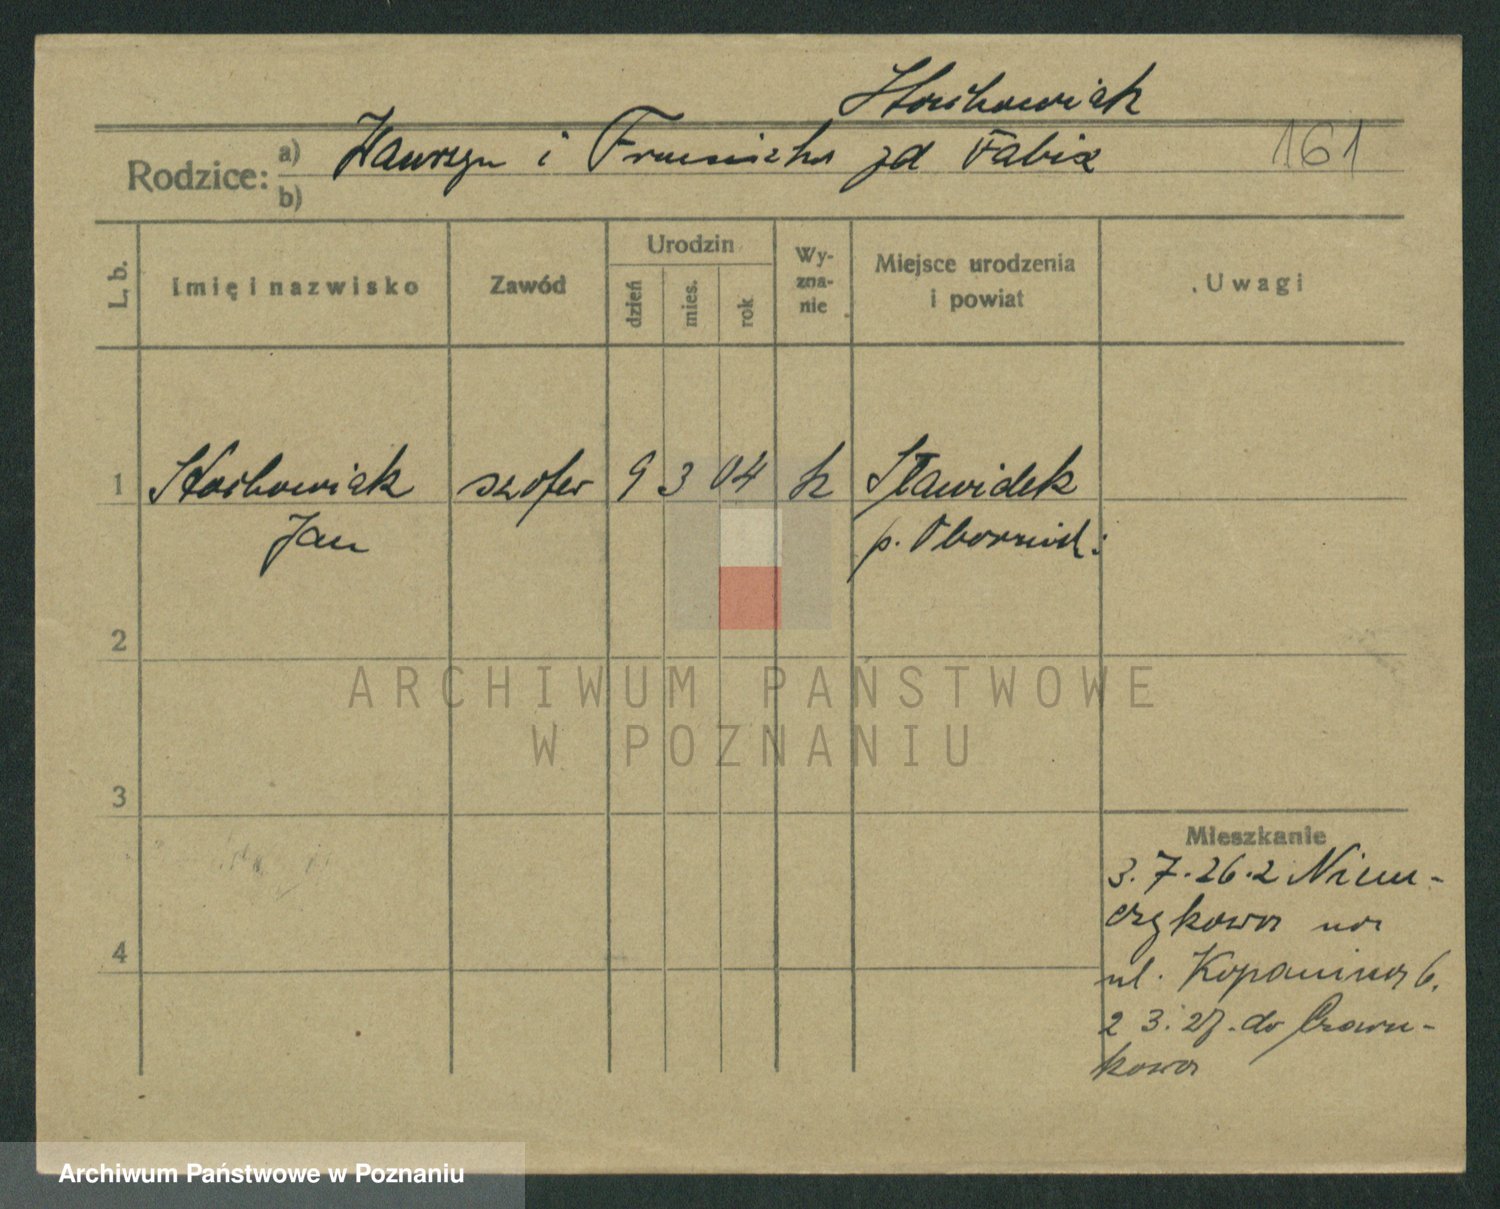 Stachowiak
Rodzice: a) Wawrzyn i Franciszka zd Fabiś
b)
161
L. b.
Imię i nazwisko
Zawód
Urodzin
dzień
mies.
rok
Wy-
zna-
nie
Miejsce urodzenia
i powiat
Uwagi
1 Stachowiak szofer 9 3 04 k
Jan p.
2
ARCHIWUM PAŃSTWOWE
W POZNANIU
3
Mieszkanie
3.7.26.z Niem-
czykowa na
4
ul. Kopanina 6.
2 3.27. do Czarn-
kowa
Archiwum Państwowe w Poznaniu